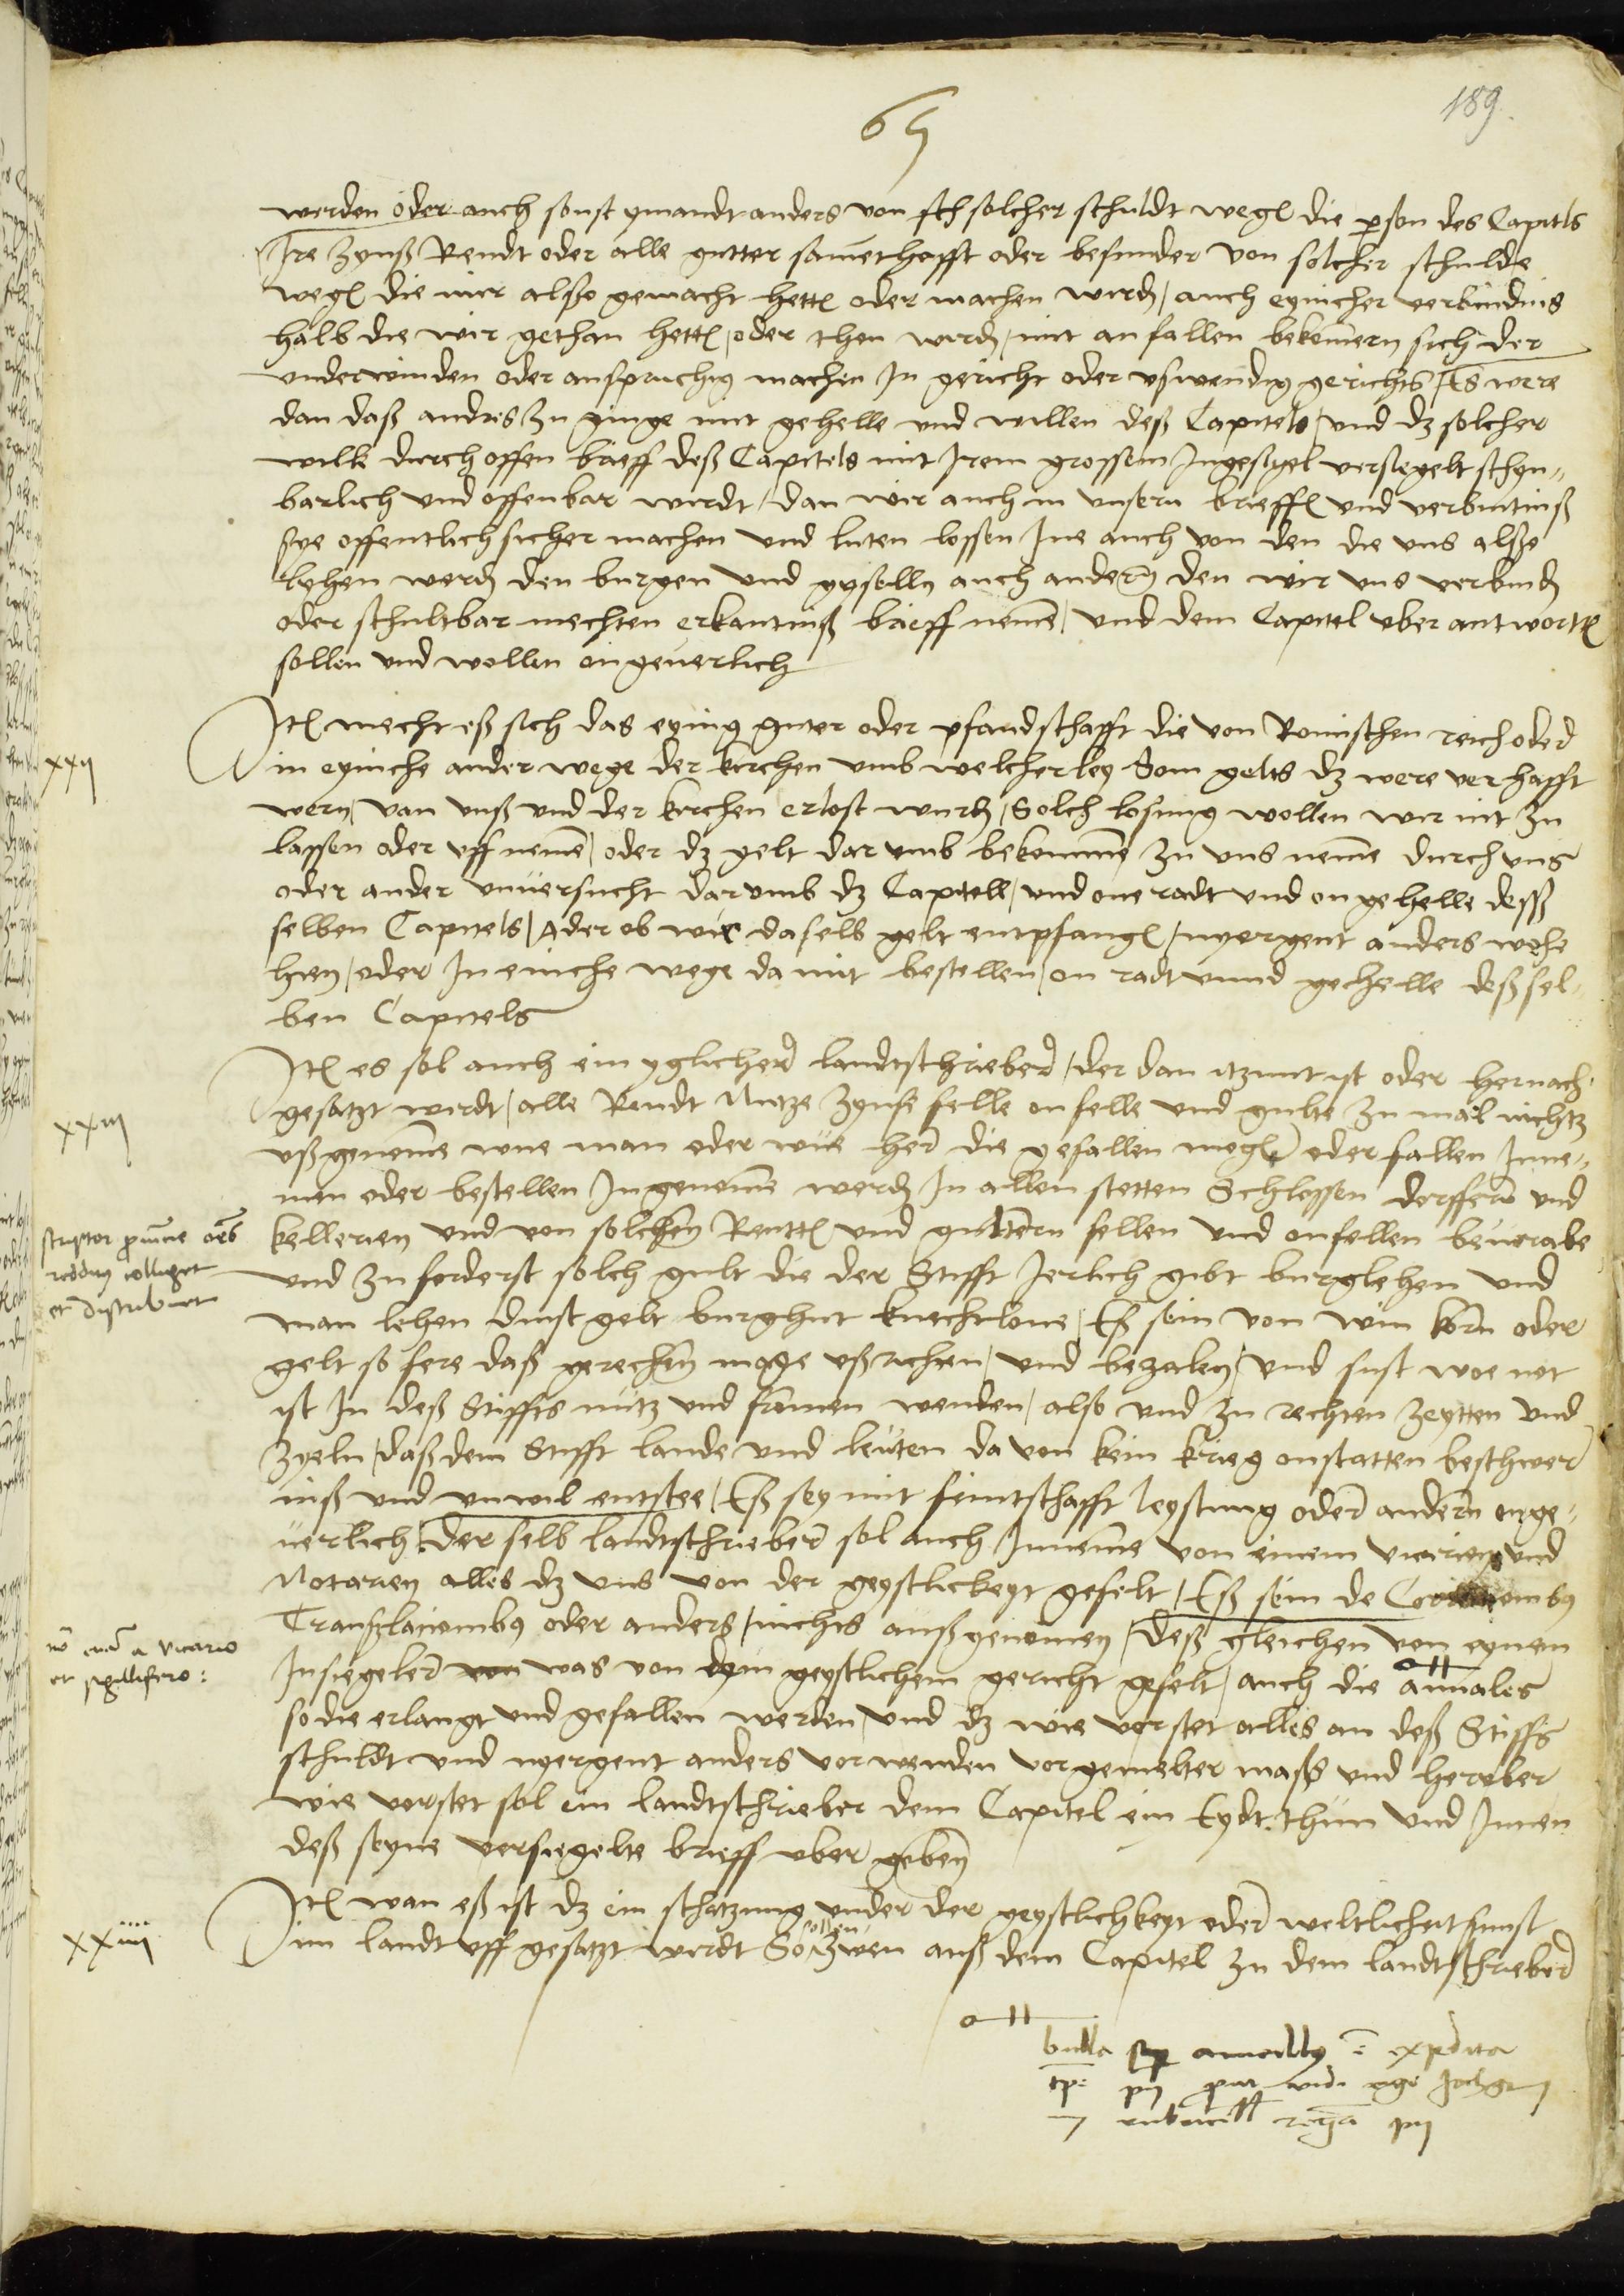 189.
65
werden oder auch sonst ymandt anders von solcher schuldt wegen die person des Capitls
Ire Zynß Rendt oder alle gutter samethafft oder besunder von solcher schulde
wegen die wir alßo gemacht hetten oder machen wurden / auch eynicher verbundnis
halb die wir gethan hetten / oder then wurden / nit anfallen bekomern sich der
underwinden oder anspruchig machen In gericht oder uswendig gerichts / Es were
dan daß andris zu ginge mit gehelle und willen deß Capitels / und dz solcher
wille durch offen brieff deß Capitels mit Irem grossem Ingesigel versiegelt schyn„
barlich und offenbar wurdt / dan wir auch in unsern brieffen und verbintniß
sye offentlich sicher machen und luten lossen Ine auch von den die uns alße
lyhen werden den burgen und gyselln auch andern den wir uns verbinden
oder schultbar mechten erkantniß brieff neme / und dem Capitel uber antworten
sollen und wollen ongeuerlich
xxij
Item mecht eß sich das eynig guter oder pfandschafft die von Romischen reich oder
in eyniche ander wege der kirchen umb welcherley Som gelts dz were verhafft
wern / van unß und der kirchen erlost wurden / Solch losung wollen wir nit zu
lassen oder uff neme / oder dz gelt dar umb bekomme zu uns neme durch uns
oder ander unuersucht dar umb dz Capitell / und one radt und on gehelle deß
selben Capitels / Ader ob wir daselb gelt entpfangen / nyergent anders wohe
hien / oder In einche wege da mit bestellen / on radt unnd gehelle deßsel„
ben Capitels
xxiij
Item es sol auch ein yglicher landtschrieber / der dan itzunt ist oder hernach
gesatzt wirdt / alle Rendt Nutze Zynse felle onfelle und gulte zu mal nichtz
ußgenome wue man oder wie her die gefallen mogen oder fallen Inne„
men oder bestellen Ingenome werden In allen stetten Schlossen dorffern und
scriptor provincie omnes
reddituus colliget
et distribuet
kellerien und von solchen Rentten und guttern fellen und onfellen beuorabe
und zu forderst solch gult die der Stifft Jerlich gibt burglehen und
man lehen dinst gelt burghut knechtlone / Eß sein von win korn oder
gelt so fere daß gerechen moge ußrichten / und bezalen / und sust woe not
ist In deß Stiffts nutz und framen wenden / also und zu rechten zeytten und
zyeln / daß dem Stifft lande und leuten da von kein krieg onstatten beschwer
niß und unwil entstee / Eß sey mit feintschafft leystung oder andern onge„
uerlich / Der selb landtschrieber sol auch Inneme von einem vicarien und
Notarien alles dz uns von der geystlickeyt gefelt / Eß sein de
Translationibus oder anders / nichts außgenomen / Deß gleichen von eynem
non etiam a vicario
et sigillifero :
Insiegeler was von dem geystlichem gericht gefelt / auch die annales
so die erlangt und gefallen werden / und dz wie vorstet alles an deß Stiffts
schuldt und nyergent anders vorwenden vorgemelter maß und hereber
wie vorstet sol ein landtschrieber dem Capitel ein Eydt thun und Innen
deß seyne versiegelte brieff uber geben
xxiiij
Item wan eß ist dz ein schatzung under der geystlichkeyt oder weltlicheit sunst
im landt uff gesatzt wirdt So sollen zwen auß dem Capitel zu dem landtschrieber
bulla super annalibus est expedita